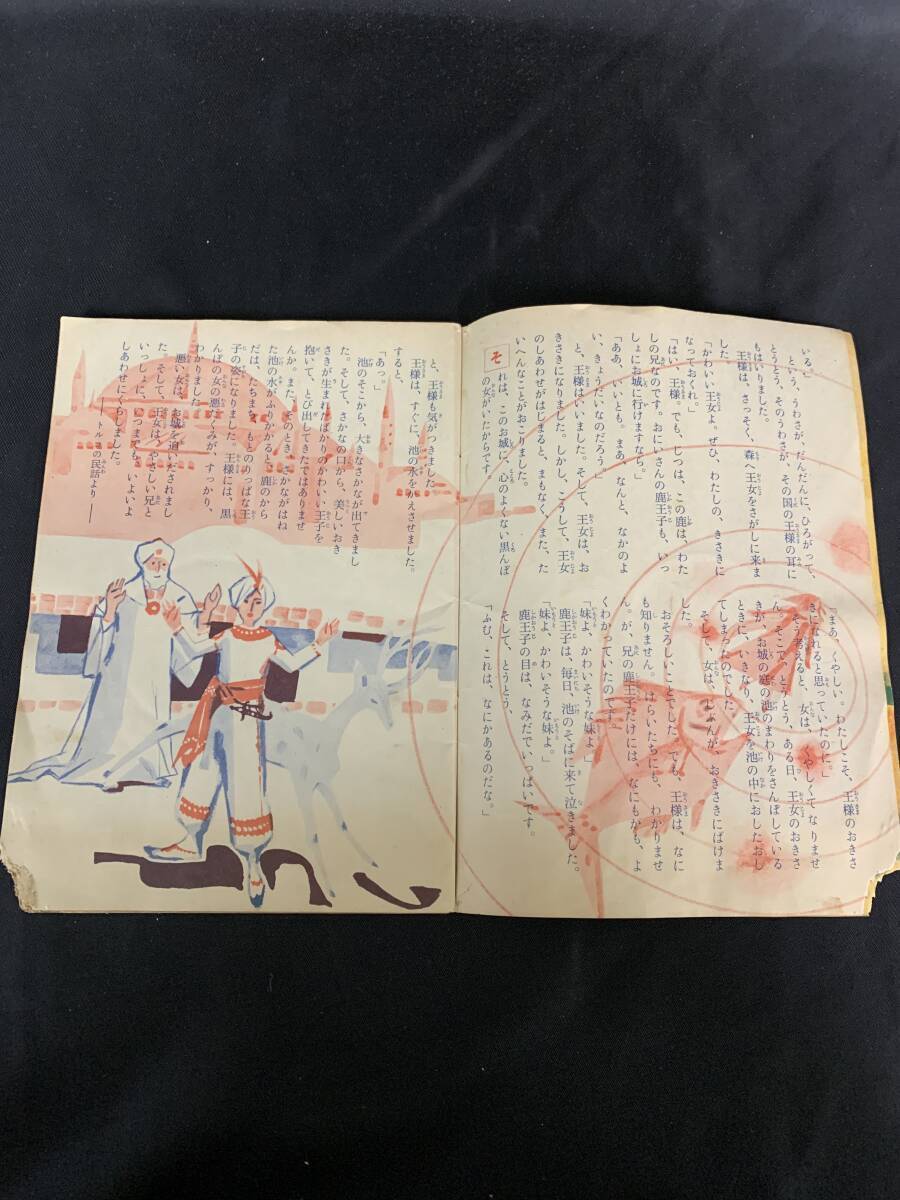 いる。」
という、うわさが、だんだんに、ひろがって、
とうとう、そのうわさが、その国の王様の耳に
もはいりました。
王様は、さっそく、森へ王女をさがしに来ま
した。
「かわいい王女よ。ぜひ、わたしの、きさきに
なっておくれ。」
「はい、王様。でも、じつは、この鹿は、わた
しの兄なのです。おにいさんの鹿王子も、いっ
しょにお城に行けますなら。」
「ああ、いいとも。まあ、なんと、なかのよ
い、きょうだいなのだろう。」
と、王様はいいました。そして、王女は、お
きさきになりました。しかし、こうして、王女
のしあわせがはじまると、まもなく、また、た
いへんなことがおこりました。
それは、このお城に、心のよくない黒んぼ
の女がいたからです。
「まあ、くやしい。わたしこそ、王様のおきさ
きになれると思っていたのに。」
そう考えると、女は、くやしくてなりませ
ん。そこで、とうとう、ある日、王女のおきさ
きが、お城の庭の池のまわりをさんぽしている
ときに、いきなり、王女を池の中におしたおし
てしまったのでした。
そして、女は、じょんが、おきさきにばけま
した。
おそろしいことでした。でも、王様は、なに
も知りません。けらいたちにも、わかりませ
ん。が、兄の鹿王子だけには、なにもかも、よ
くわかっていたのです。
「妹よ、かわいそうな妹よ。」
鹿王子は、毎日、池のそばに来て泣きました。
「妹よ、かわいそうな妹よ。」
鹿王子の目は、なみだでいっぱいです。
そして、とうとう、
「ふむ、これは、なにかあるのだな。」
と、王様も気がつきました
王様は、すぐに、池の水をかえさせました。
すると、
「あっ。」
池のそこから、大きなさかなが出てきまし
た。そして、さかなの口から、美しいおき
さきが生まれたばかりのかわいい王子を
抱いて、とび出してきたではありませ
んか。また、そのとき、さかながはね
た池の水がふりかかると、鹿のから
だは、たちまち、もとのりっぱな王
子の姿になりました。王様には、黒
んぼの女の悪だくみが、すっかり、
わかりました。
悪い女は、お城を追いだされまし
た。そして、王女は、やさしい兄と
いっしょに、いつまでも、いよいよ
しあわせにくらしました。
――トルコの民話より――